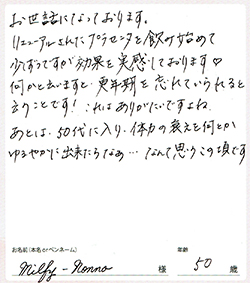 お世話になっております。
リニューアルされたプラセンタを飲み始めて
少しずつですが効果を実感しております♡
何かと思いますと、更年期を忘れていられると
言うことです! これはありがたいですよね。
あとは、50代に入り、体力の衰えを何とか
ゆるやかに出来たらなぁ… なんて思うこの頃です
お名前(本名orペンネーム)
年齢
Milfy - Nonno 様 50 歳